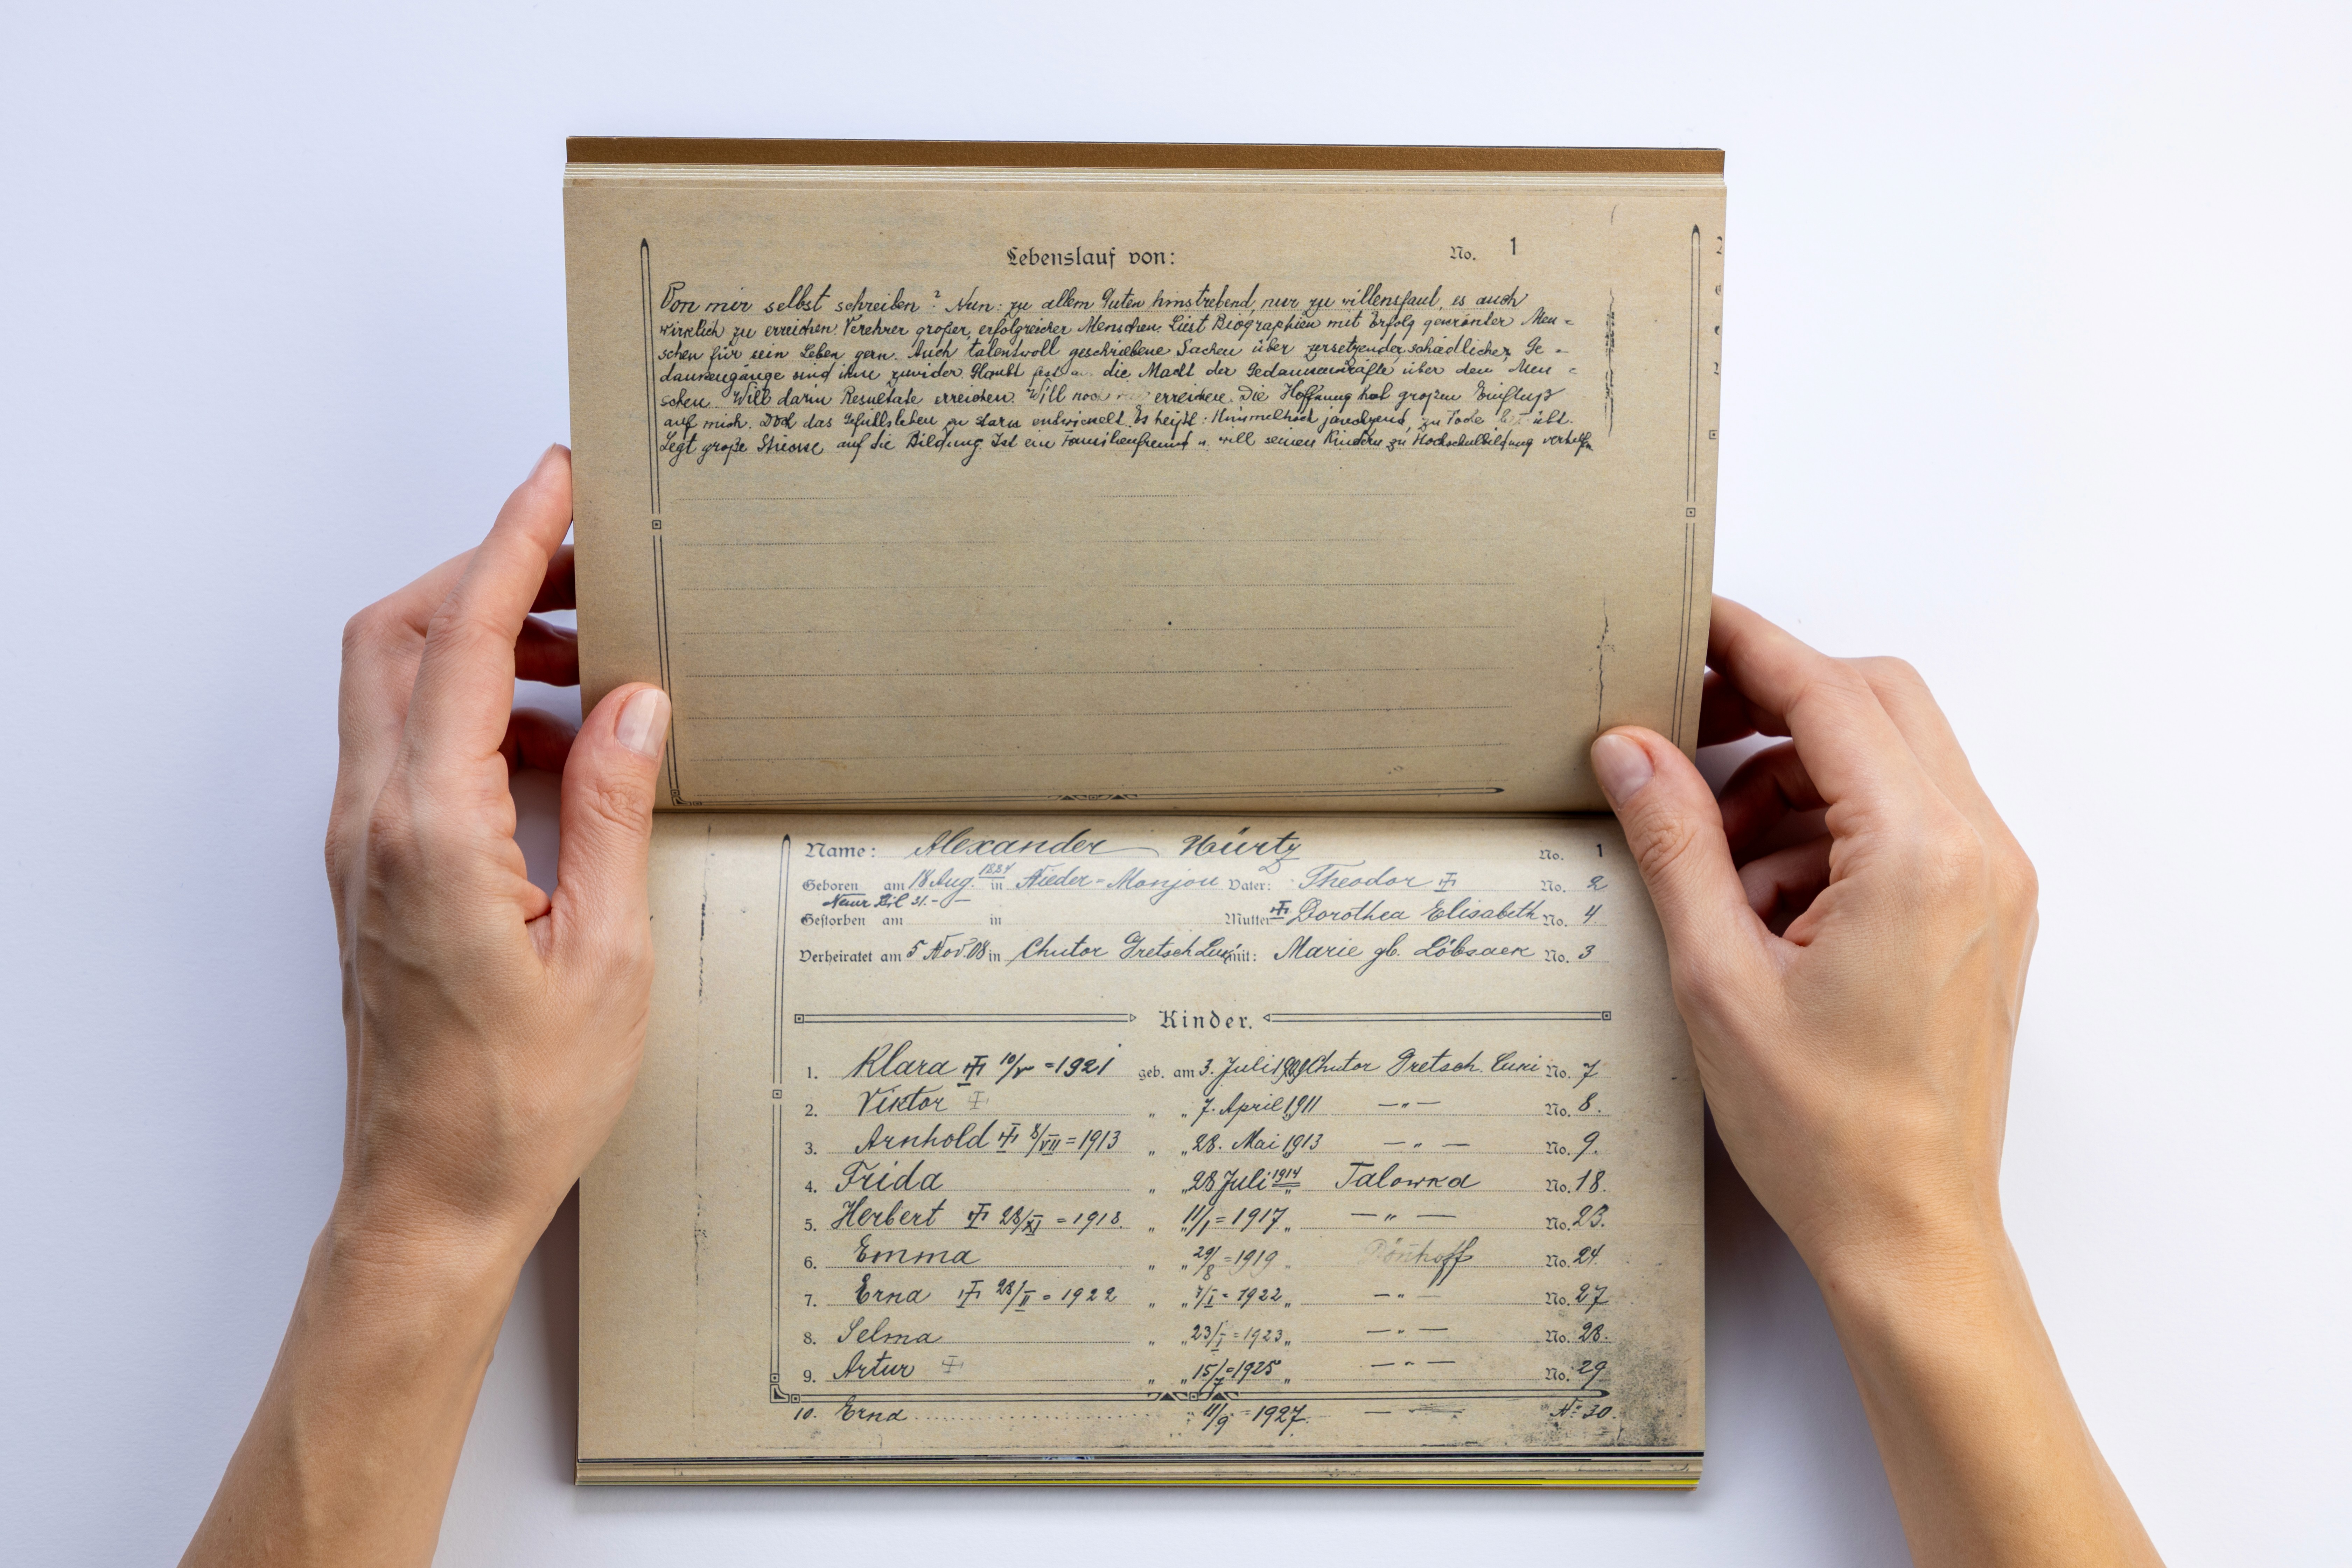 Lebenslauf von: No. 1
Von mir selbst schreiben? Nun: zu allem Guten hinstrebend, nur zu willensfaul, es auch
wirklich zu erreichen. Verehrer großer, erfolgreicher Menschen. Liest Biographien mit Erfolg gekrönter Men=
schen für sein Leben gern. Auch talentvoll geschriebene Sachen über zersetzender, schädlicher, Ge=
dankengänge sind ihm zuwider. Glaubt fest a. die Macht der Gedankenkräfte über den Men=
schen. Will darin Resultate erreichen. Will noch erreichen. Die Hoffnung hat großen Einfluß
auf mich. Doch das Gefühlsleben zu stark entwickelt. Es heißt: Himmelhoch jauchzend, zu Tode betrübt.
Legt große Stücke auf die Bildung. Ist ein Familienfreund u. will seinen Kindern zu Hochschulbildung verhelfen
Name: Alexander Würtz No. 1
Geboren am 18 Aug. 1884 in Nieder=Monjou Vater: Theodor No. 2
Neuer Stil 31.
Gestorben am in Mutter Dorothea Elisabeth No. 4
Verheiratet am 5 Nov. 08 in Chutor Gretsch Luki mit: Marie gb. Löbsack No. 3
Kinder.
1. Klara 10/V =1921 geb. am 3. Juli Chutor Gretsch. Luki No. 7
2. Viktor " " 7. April 1911 — " — No. 8.
3. Arnhold 8/VII =1913 " " 28. Mai 1913 — " — No. 9.
4. Frida " " 28 Juli 1914 " Talowka No. 18.
5. Herbert 28/XI =1918. " " 11/1 =1917 " — " — No. 23.
6. Emma " " 29/8 =1919 " Dönhoff No. 24.
7. Erna 28/II =1922 " " 7/I =1922 " — " — No. 27
8. Selma " " 23/I =1923 " — " — No. 28.
9. Artur " " 15/7 =1925 " — " — No. 29
10. Erna " 11/9 =1927. — " — No 30.